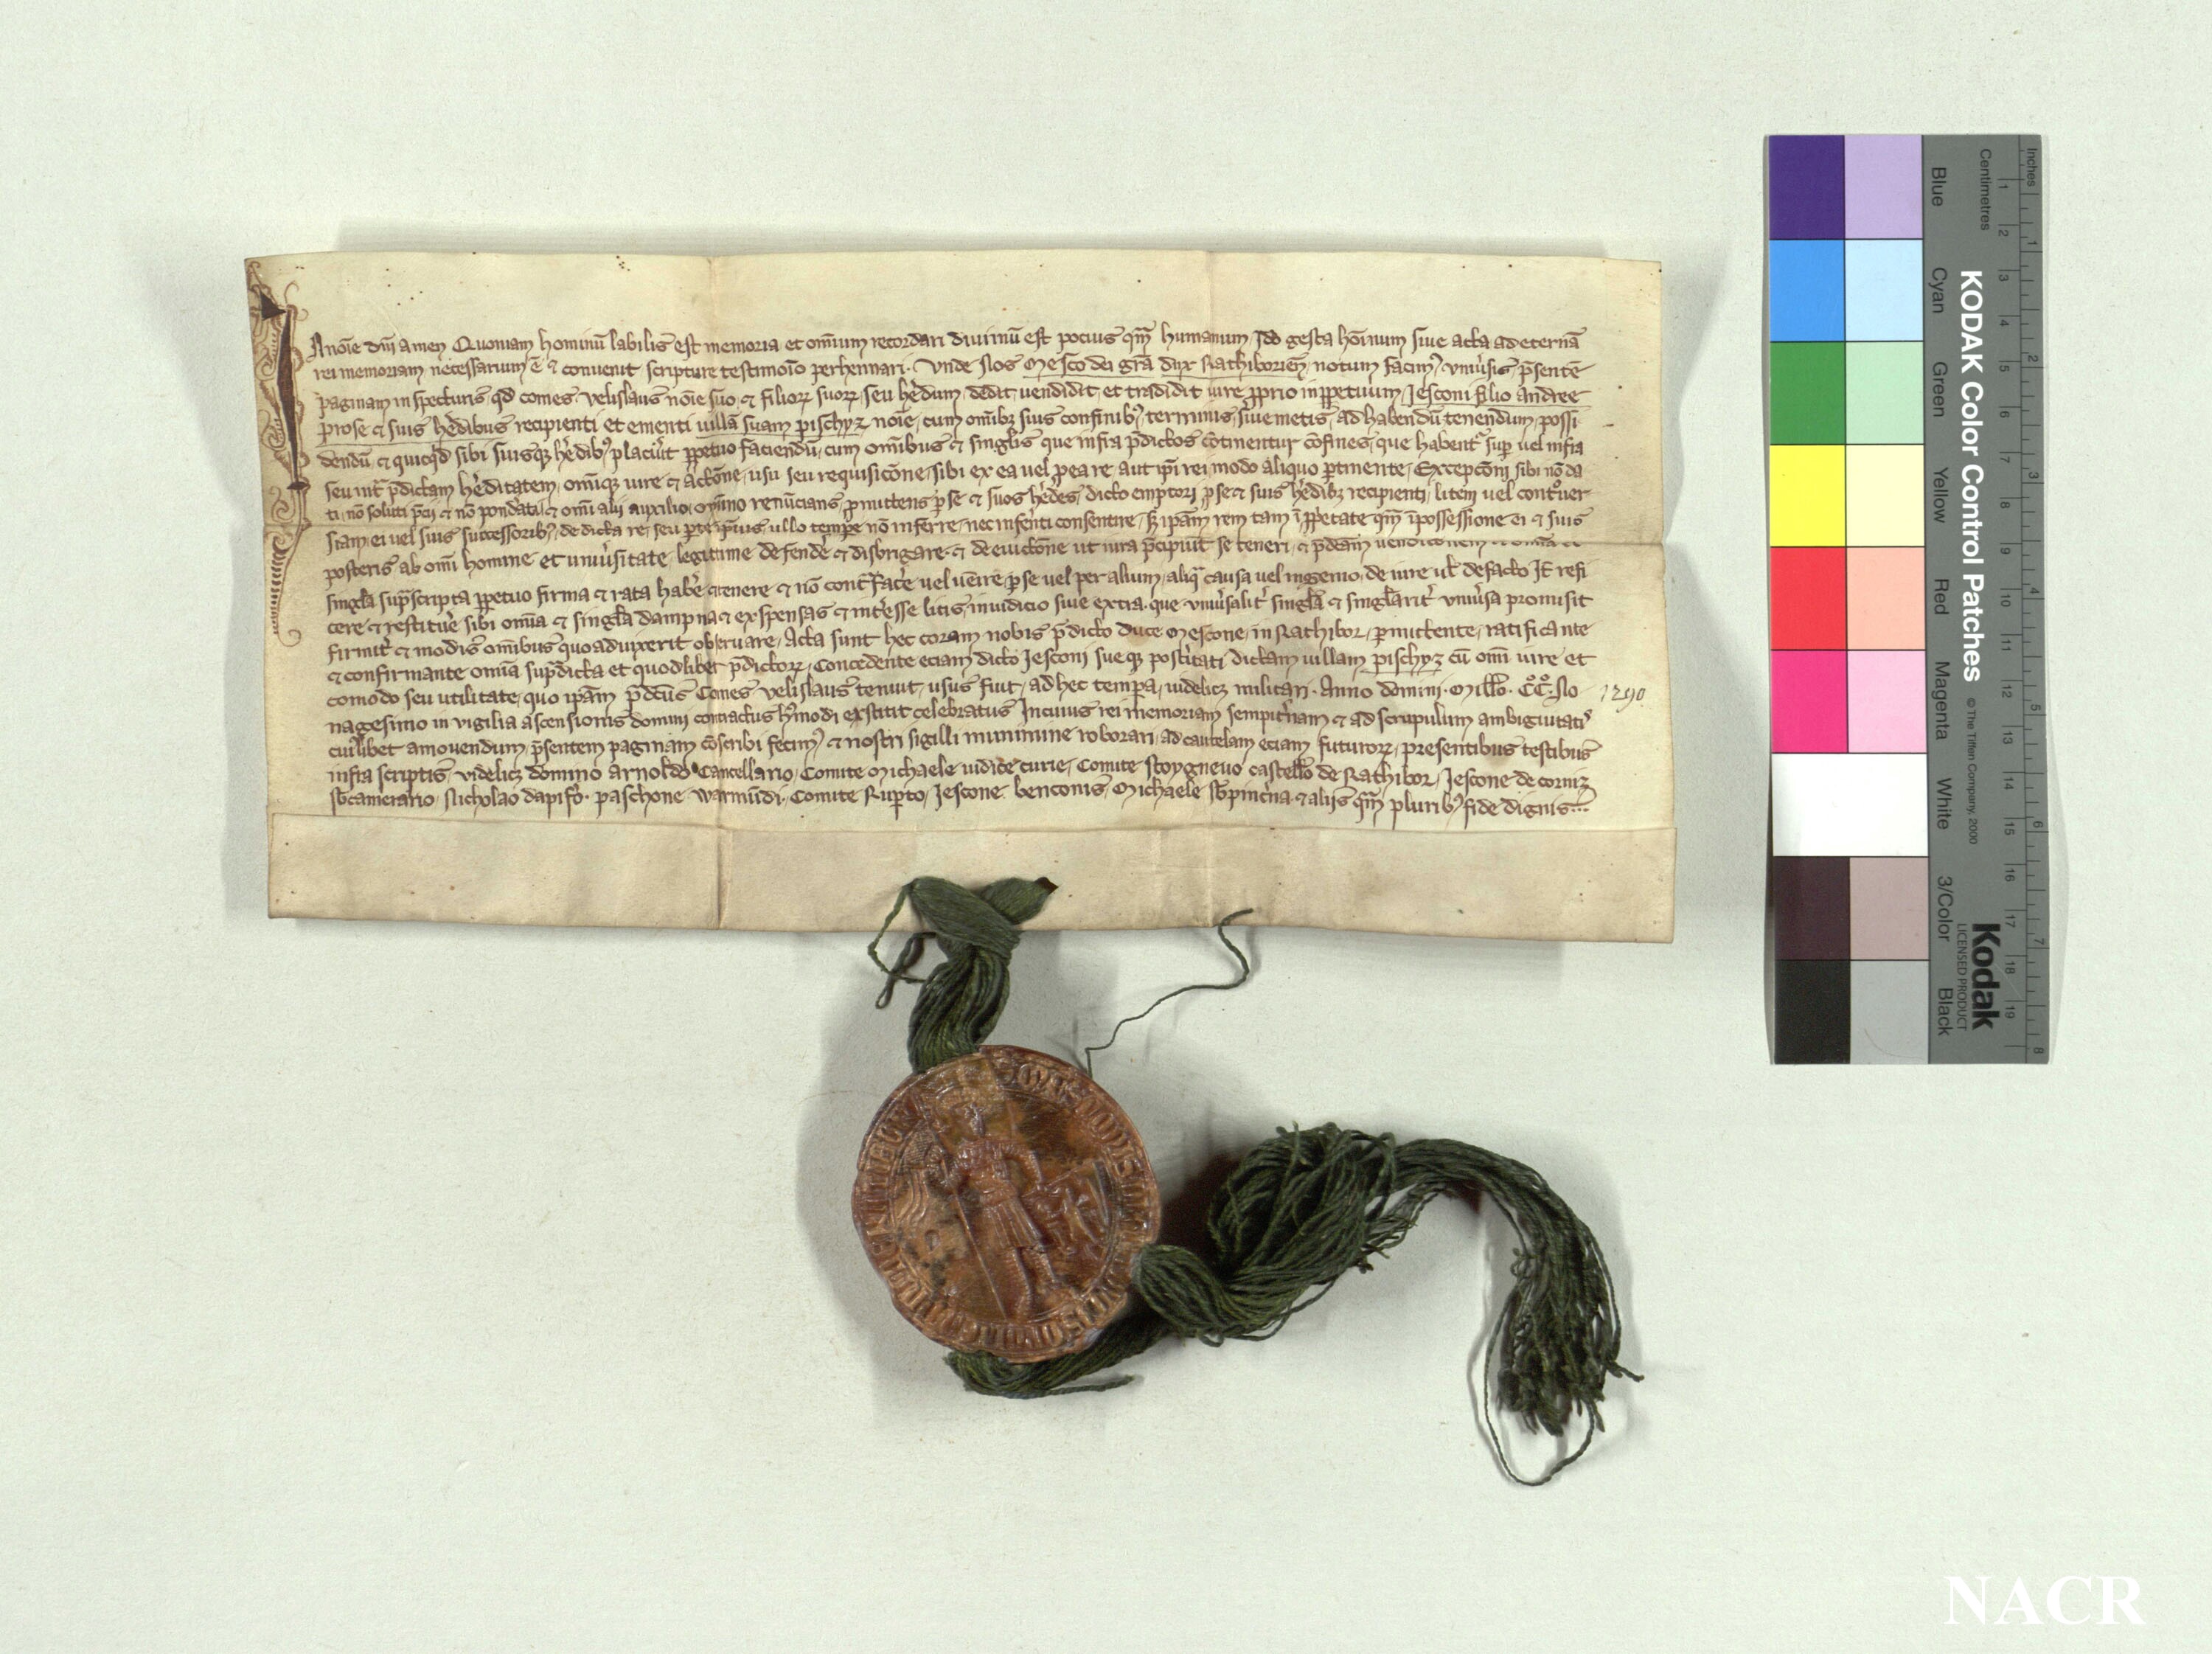 In nōie dn̄i amen Quoniam hominū labilis est memoria et om̄ium recordari diuinū est pocius qm̄ humanum, Ido gesta hōinum siue acta ad eternā
rei memoriam necessarium ē ⁊ conuenit scripture testimōio perhennari. Vnde Nos Mesco dei grā dux Rathiborien̄, notum facim⁹, vniu̓sis p̄sentē
paginam inspecturis, qd comes velislaus nōie suo, ⁊ filioꝝ suoꝝ, seu he̓dum, dedit, uendidit, et tradidit iure ꝓprio inꝑpetuum, Jesconi filio andree
prose ⁊ suis he̓dibus recipienti et ementi uillā suam pischyz nōie, cum om̄ibꝫ suis confinib⁹, terminis, siue metis, ad habendū, tenendum, possi
dendū, ⁊ quicq̓d sibi suisqꝫ he̓dib⁹, placu̓it ꝑpetuo faciendū, cum om̄ibus ⁊ singl̓is que infra p̄dictos cōtinentur cōfines, que habent᷑ sup̱ uel infra
seu int᷑ p̄dictam he̓ditatem, om̄iqꝫ iure ⁊ actōne, usu seu requisicōne, sibi ex ea uel ꝓ ea re aut ip̄i rei modo aliquo ꝑtinente, Excepcōni sibi nō da
ti, nō soluti p̄cii ⁊ nō pondēati, ⁊ om̄i alii auxilio, om̄ino renūcians, ꝓmittens ꝑ se ⁊ suos he̓des, dicto emptori ꝓ se ⁊ suis he̓dibꝫ recipienti, litem uel contͦuer
siam ei vel suis successorib⁹, de dicta re, seu ꝑte ip̄ius ullo tempe nō inferre, nec infe̓nti consentire, sꝫ ip̄am rem tam ī ꝓp̓etate qm̄ ī possessione ei ⁊ suis
posteris ab om̄i homine et uniu̓sitate legitime defende̓ ⁊ disbrigare, ⁊ de euictōne ut iura p̄cipiūt se teneri, ⁊ p̄dc̄am uendicōnem ⁊ om̄ia ⁊
singl̓a sup̄scripta ꝑpetuo firma ⁊ rata habe̓ ⁊ tenere ⁊ nō contra face̓ uel uēire, ꝑ se uel per alium, aliq̓ causa uel ingenio, de iure ul̓ de facto It̄ refi
cere ⁊ restitue̓ sibi om̄ia ⁊ singl̓a dampna ⁊ expensas ⁊ inte̓sse litis, in iudicio siue extra. que vniu̓salit̓ singl̓a ⁊ singl̓arit̓ vniu̓sa promisit
firmit̓ ⁊ modis om̄ibus quoaduixerit obseruare, Acta sunt hec coram nobis p̄dicto duce Mescone, in Rathibor, ꝑmittente, ratificante
⁊ confirmante om̄ia sup̄dicta et quodlibet p̄dictoꝝ, Concedente eciam dicto Jesconi sueqꝫ poste̓itati dictam uillam pischyz cū om̄i iure et
comodo seu utilitate, quo ip̄am p̄dc̄us Comes velislaus tenuit, usus fuit, ad hec tempa, uidelicꝫ militari. Anno domini. Mill̓o. CͦCͦ. No 1290
nagesimo in vigilia ascensionis domini contractus hmōdi exstitit celebratus In cuius rei memoriam sempit̓nam ⁊ ad scrupulum ambiguitatis
cuil̓ibet amouendum, p̄sentem paginam cōscribi fecim⁹ ⁊ nostri sigilli munimine roborari, ad cautelam eciam futuroꝝ, presentibus testibus
infra scriptis, videlicꝫ domino arnoldo Cancellario, Comite Michaele iudice curie, Comite stoygneuo castell̓o de Rathibor, Jescone de corniz
sb̄camerario, Nicholao dapife̓o. paschone warmūdi, Comite Rup̱to, Jescone benconis, Michaele sb̄pinc̓na, ⁊ alijs qm̄ plurib⁹ fide dignis...
Inches
Centimetres
1 2 3 4 5 6 7 8 9 10 11 12 13 14 15 16 17 18 19
1 2 3 4 5 6 7 8
KODAK Color Control Patches © The Tiffen Company, 2000
Kodak
LICENSED PRODUCT
Blue Cyan Green Yellow Red Magenta White 3/Color Black
NACR